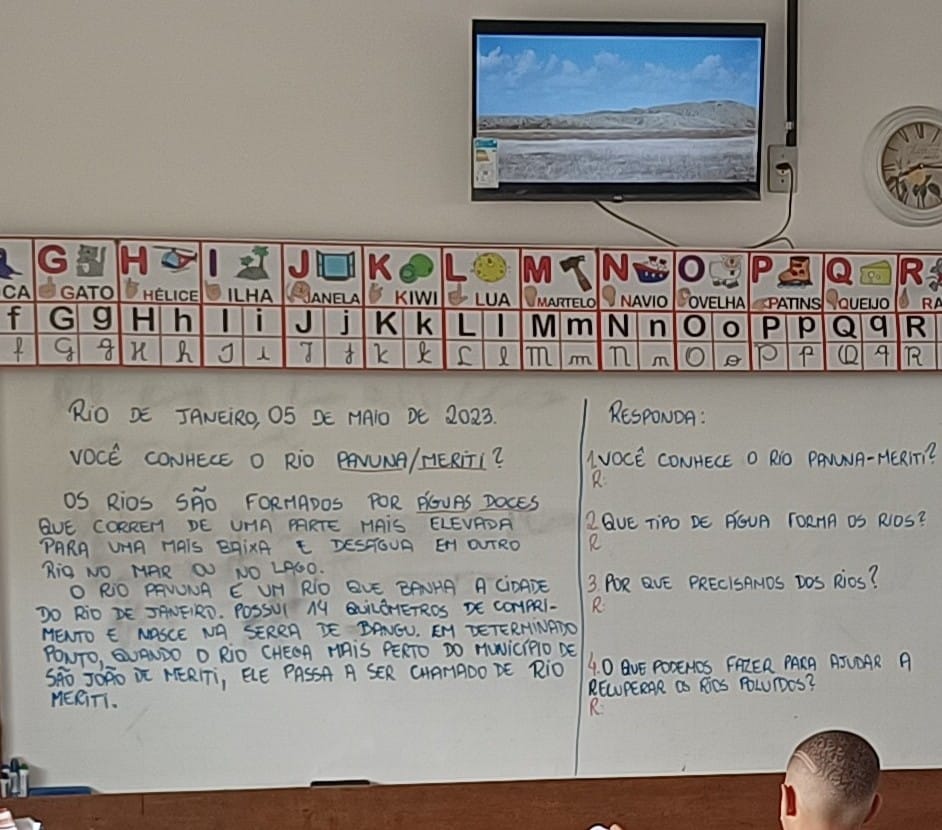 CA GATO HÉLICE ILHA JANELA KIWI LUA MARTELO NAVIO OVELHA PATINS QUEIJO RA
G H I J K L M N O P Q R
f G g H h I i J j K k L l M m N n O o P p Q q R
f G g H h I i J j K k L l M m N n O o P p Q q R
RIO DE JANEIRO, 05 DE MAIO DE 2023.
VOCÊ CONHECE O RIO PAVUNA/MERITI?
OS RIOS SÃO FORMADOS POR ÁGUAS DOCES
QUE CORREM DE UMA PARTE MAIS ELEVADA
PARA UMA MAIS BAIXA E DESÁGUA EM OUTRO
RIO, NO MAR OU NO LAGO.
O RIO PAVUNA É UM RIO QUE BANHA A CIDADE
DO RIO DE JANEIRO. POSSUI 14 QUILÔMETROS DE COMPRI-
MENTO E NASCE NA SERRA DE BANGU. EM DETERMINADO
PONTO, QUANDO O RIO CHEGA MAIS PERTO DO MUNICÍPIO DE
SÃO JOÃO DE MERITI, ELE PASSA A SER CHAMADO DE RIO
MERITI.
RESPONDA:
1. VOCÊ CONHECE O RIO PAVUNA-MERITI?
R:
2. QUE TIPO DE ÁGUA FORMA OS RIOS?
R
3. POR QUE PRECISAMOS DOS RIOS?
R:
4. O QUE PODEMOS FAZER PARA AJUDAR A
RECUPERAR OS RIOS POLUÍDOS?
R: